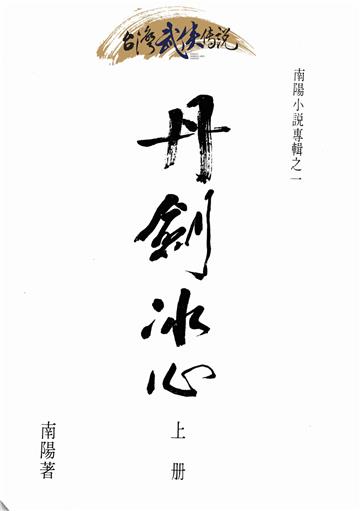 台灣武俠傳説
南陽小説專輯之一
丹劍冰心
上册
南陽著